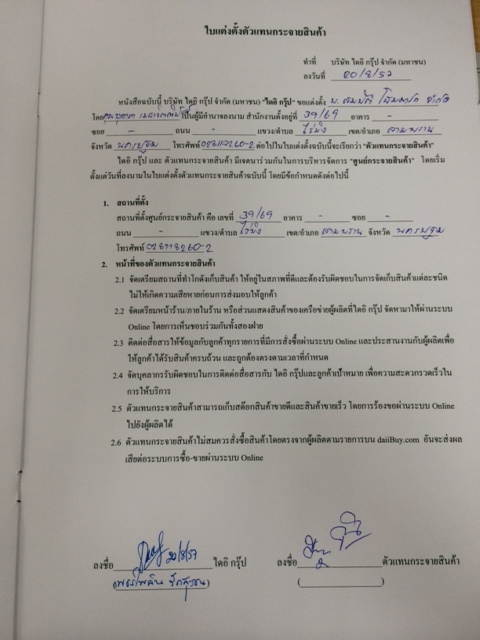 ใบแต่งตั้งตัวแทนกระจายสินค้า
ทำที่ บริษัท ไดอิ กรุ๊ป จำกัด (มหาชน)
ลงวันที่ 20/8/57
หนังสือฉบับนี้ บริษัท ไดอิ กรุ๊ป จำกัด (มหาชน) "ไดอิ กรุ๊ป" ขอแต่งตั้ง บ. จำกัด
โดย เป็นผู้มีอำนาจลงนาม สำนักงานตั้งอยู่ที่ 39/69 อาคาร -
ซอย - ถนน - แขวง/ตำบล ไร่ขิง เขต/อำเภอ สามพราน
จังหวัด นครปฐม โทรศัพท์ 028118260-2 ต่อไปในใบแต่งตั้งนี้จะเรียกว่า "ตัวแทนกระจายสินค้า"
ไดอิ กรุ๊ป และ ตัวแทนกระจายสินค้า มีเจตนาร่วมกันในการบริหารจัดการ "ศูนย์กระจายสินค้า" โดยเริ่ม
ตั้งแต่วันที่ลงนามในใบแต่งตั้งตัวแทนกระจายสินค้าฉบับนี้ โดยมีข้อกำหนดดังต่อไปนี้
1. สถานที่ตั้ง
สถานที่ตั้งศูนย์กระจายสินค้า คือ เลขที่ 39/69 อาคาร - ซอย -
ถนน - แขวง/ตำบล ไร่ขิง เขต/อำเภอ สามพราน จังหวัด นครปฐม
โทรศัพท์ 028118260-2
2. หน้าที่ของตัวแทนกระจายสินค้า
2.1 จัดเตรียมสถานที่ทำโกดังเก็บสินค้า ให้อยู่ในสภาพที่ดีและต้องรับผิดชอบในการจัดเก็บสินค้าแต่ละชนิด
ไม่ให้เกิดความเสียหายก่อนการส่งมอบให้ลูกค้า
2.2 จัดเตรียมหน้าร้าน/ภายในร้าน หรือส่วนแสดงสินค้าของเครือข่ายผู้ผลิตที่ไดอิ กรุ๊ป จัดหามาให้ผ่านระบบ
Online โดยการเห็นชอบร่วมกันทั้งสองฝ่าย
2.3 ติดต่อสื่อสารให้ข้อมูลกับลูกค้าทุกรายการที่มีการสั่งซื้อผ่านระบบ Online และประสานงานกับผู้ผลิตเพื่อ
ให้ลูกค้าได้รับสินค้าครบถ้วน และถูกต้องตรงตามเวลาที่กำหนด
2.4 จัดบุคลากรรับผิดชอบในการติดต่อสื่อสารกับ ไดอิ กรุ๊ปและลูกค้าเป้าหมาย เพื่อความสะดวกรวดเร็วใน
การให้บริการ
2.5 ตัวแทนกระจายสินค้าสามารถเก็บสต๊อกสินค้าขายดีและสินค้าขายเร็ว โดยการร้องขอผ่านระบบ Online
ไปยังผู้ผลิตได้
2.6 ตัวแทนกระจายสินค้าไม่สมควรสั่งซื้อสินค้าโดยตรงจากผู้ผลิตตามรายการบน daiiBuy.com อันจะส่งผล
เสียต่อระบบการซื้อ-ขายผ่านระบบ Online
ลงชื่อ 20/8/57 ไดอิ กรุ๊ป ลงชื่อ ตัวแทนกระจายสินค้า